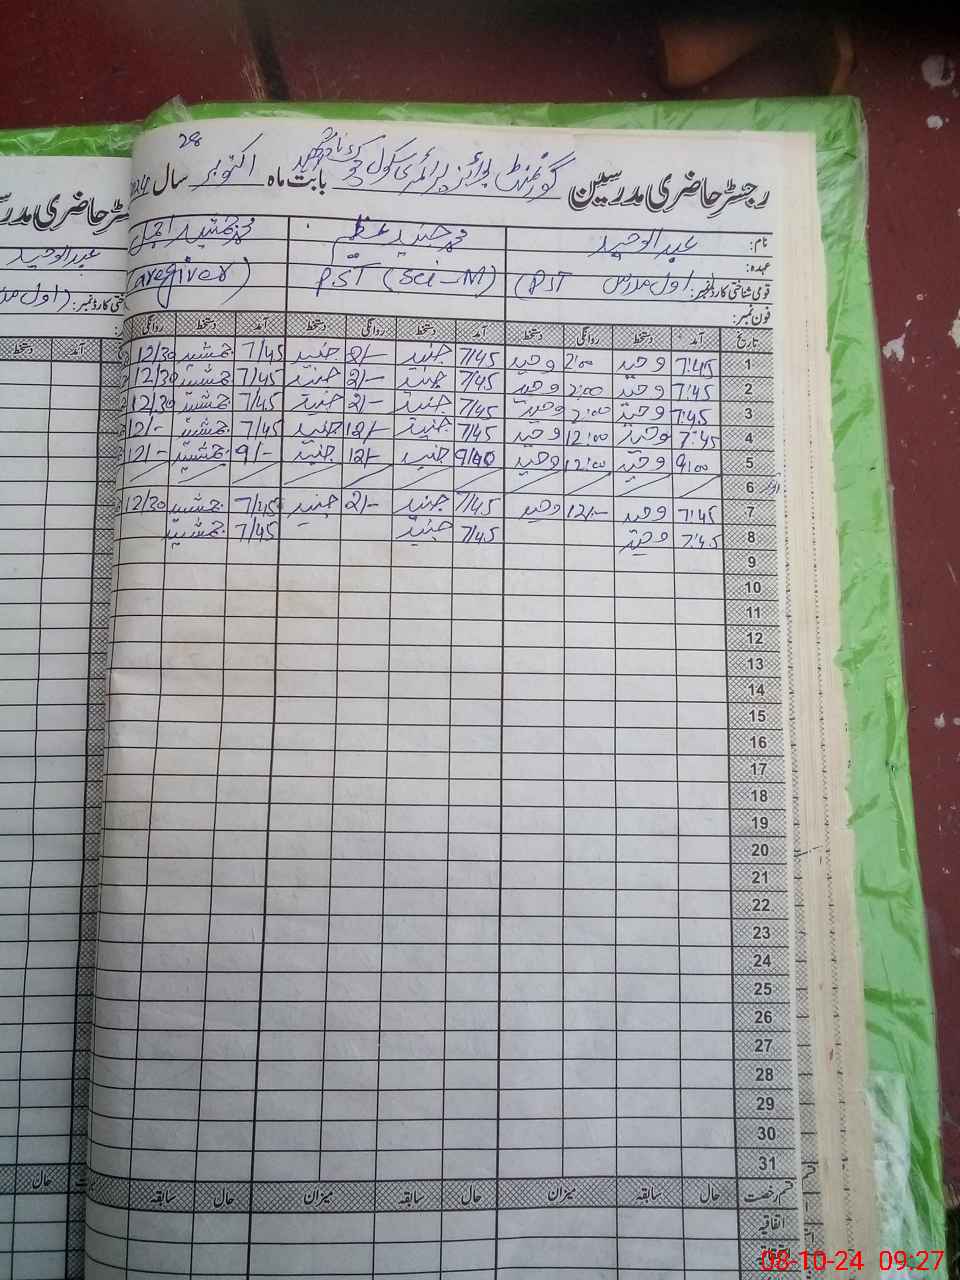 28
رجسٹر حاضری مدرسین گورنمنٹ بوائز پرائمری سکول بابت ماہ اکتوبر سال
نام: عبدالوحید محمد جنید عظیم محمد جمشید اجمل
عہدہ:
قومی شناختی کارڈ نمبر: اول مدرس PST PST (Sci-M) (Caregiver)
فون نمبر:
تاریخ آمد دستخط روانگی دستخط آمد دستخط روانگی دستخط آمد دستخط روانگی
1 7:45 وحید 2:00 وحید 7/45 جنید 2/- جنید 7/45 جمشید 12/30
2 7:45 وحید 2:00 وحید 7/45 جنید 2/- جنید 7/45 جمشید 12/30
3 7:45 وحید 2:00 وحید 7/45 جنید 2/- جنید 7/45 جمشید 12/30
4 7:45 وحید 12:00 وحید 7/45 جنید 12/- جنید 7/45 جمشید 12/-
5 9:00 وحید 12:00 وحید 9/00 جنید 12/- جنید 9/- جمشید 12/-
6 اتوار
7 7:45 وحید 12/- وحید 7/45 جنید 2/- جنید 7/45 جمشید 12/30
8 7:45 وحید 7/45 جنید 7/45 جمشید
9
10
11
12
13
14
15
16
17
18
19
20
21
22
23
24
25
26
27
28
29
30
31
قسم رخصت حال سابقہ میزان حال سابقہ میزان حال سابقہ
اتفاقیہ
عبدالوحید
اول مدرس
آمد دستخط
حال
08-10-24 09:27